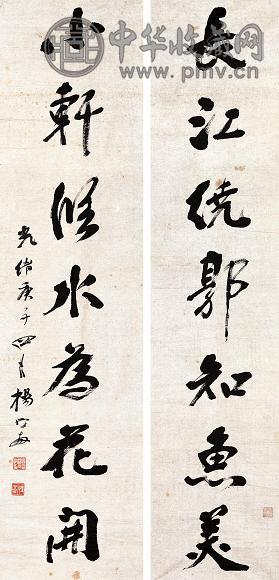 中华收藏网
www.pmv.cn
長江繞郭知魚美
小軒臨水為花開
光緒庚子四月楊守敬